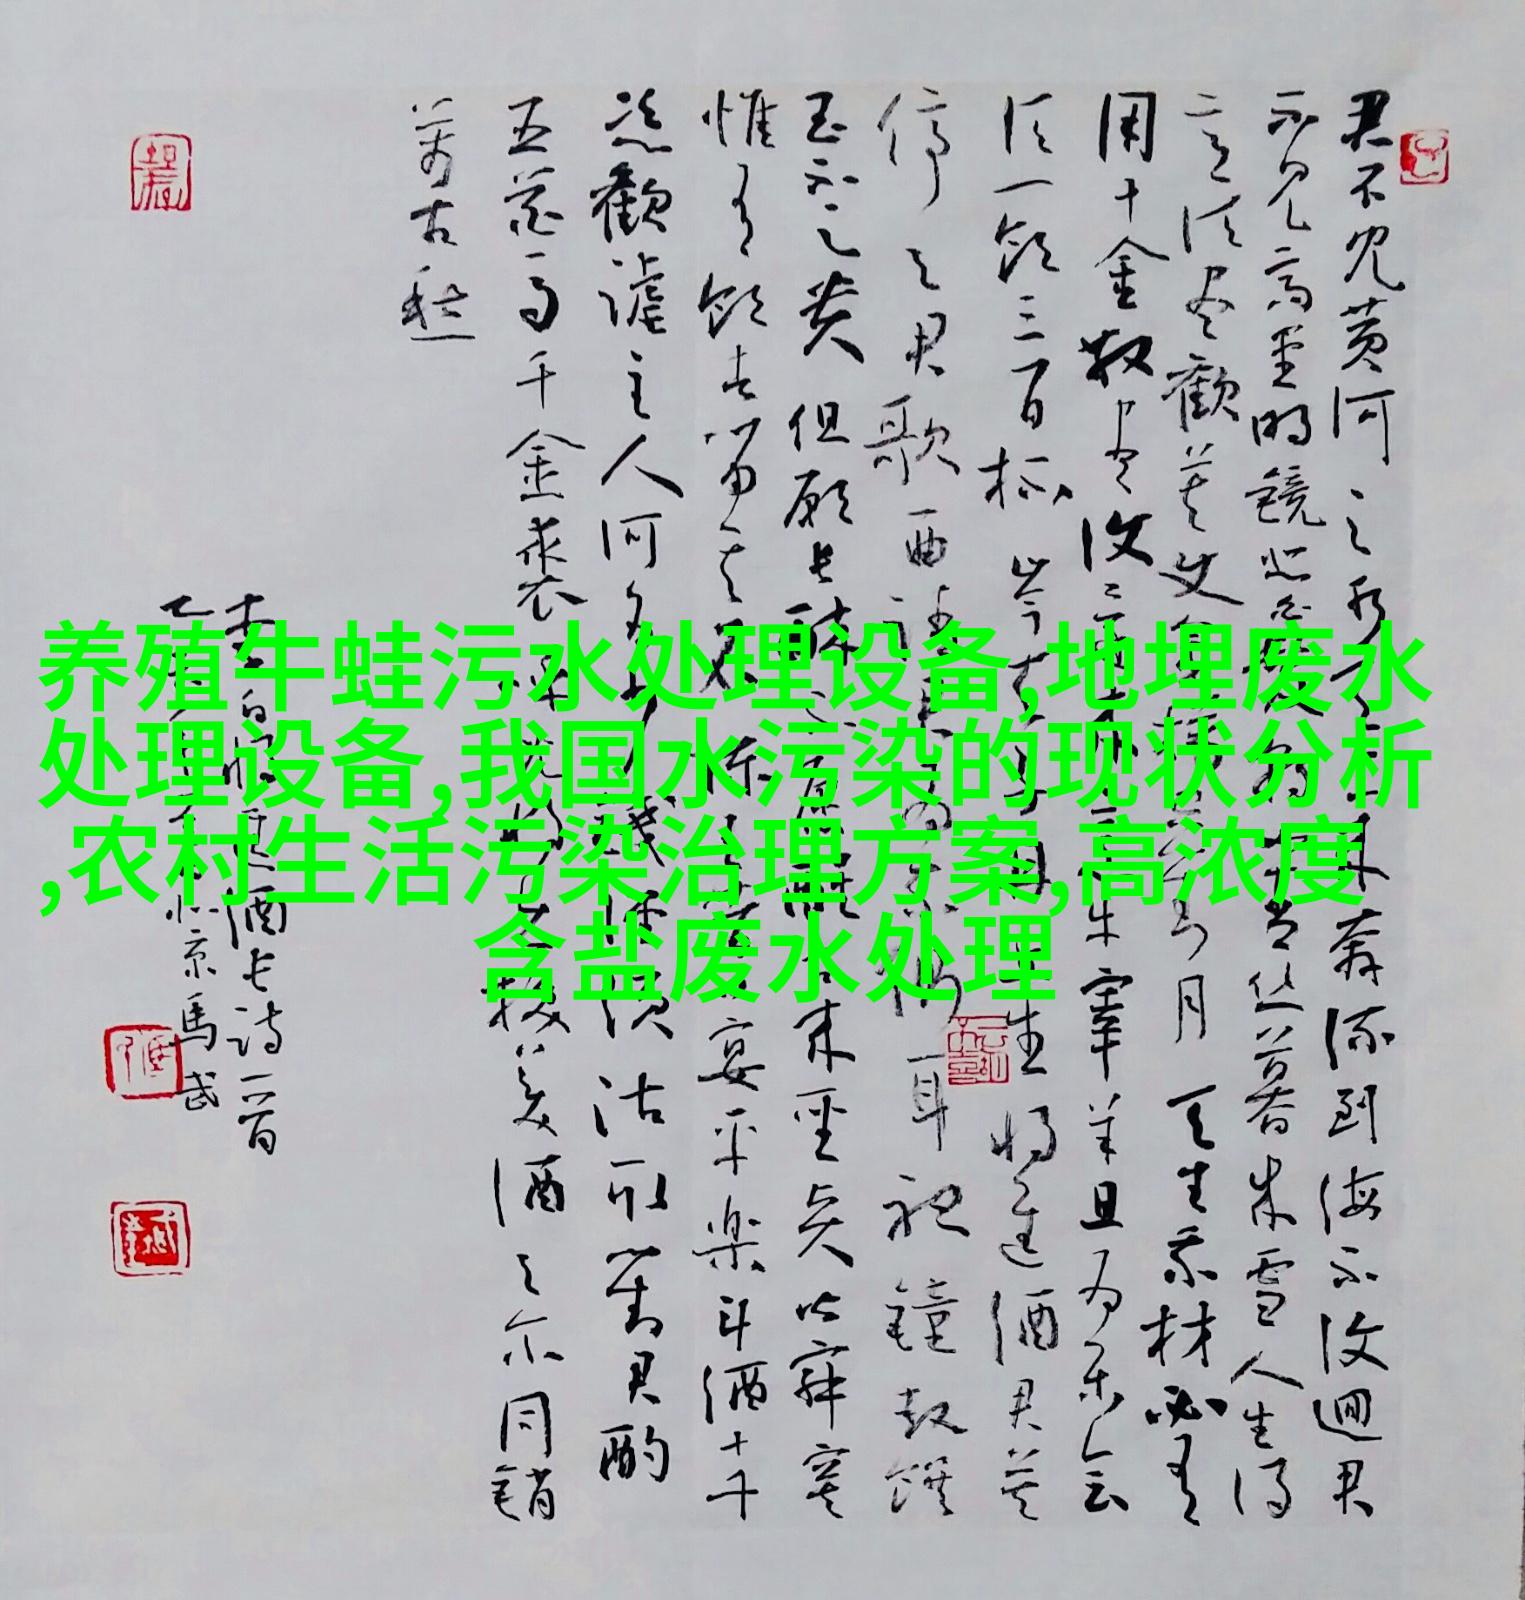 君不见黄河之水天上来奔流到海不復迴君
不见高堂明镜悲白发朝如青丝暮成雪人生得
意须尽歡莫使金樽空对月天生我材必有
用千金散尽復还来烹牛宰羊且为乐会
须一饮三百杯岑夫子丹丘生将進酒君莫
停与君歌一曲请君为我倾耳听鐘鼓馔
玉不足贵但愿长醉不愿醒古来聖贤皆寂寞
惟有饮者留其名陈王昔时宴平楽斗酒十千
恣歡謔主人何为言少钱径须沽取对君酌
五花马千金裘呼儿将出换美酒与尔同销
萬古愁
李白将進酒长诗一首
京馬武
养殖牛蛙污水处理设备,地埋废水
处理设备,我国水污染的现状分析
,农村生活污染治理方案,高浓度
含盐废水处理